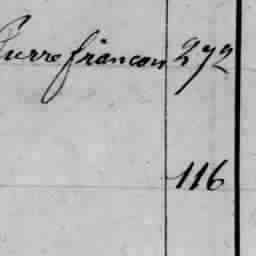 Pierre francois 272
116